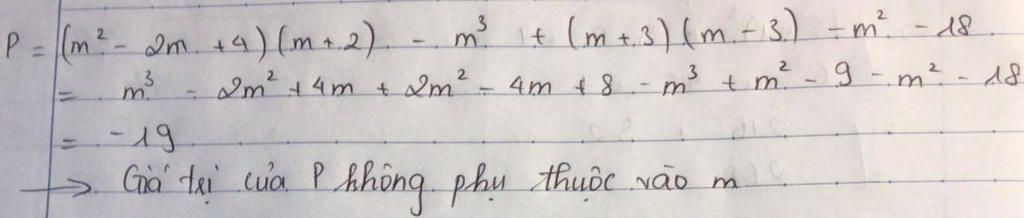 P = (m² - 2m + 4)(m + 2) - m³ + (m + 3)(m - 3) - m² - 18
= m³ - 2m² + 4m + 2m² - 4m + 8 - m³ + m² - 9 - m² - 18
= -19
→ Giá trị của P không phụ thuộc vào m